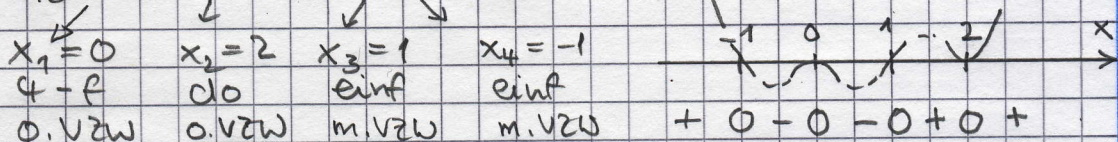 x₁ = 0 x₂ = 2 x₃ = 1 x₄ = -1
4-f do einf einf
o. VZW o. VZW m. VZW m. VZW
-1 0 1 2 x
+ 0 - 0 - 0 + 0 +